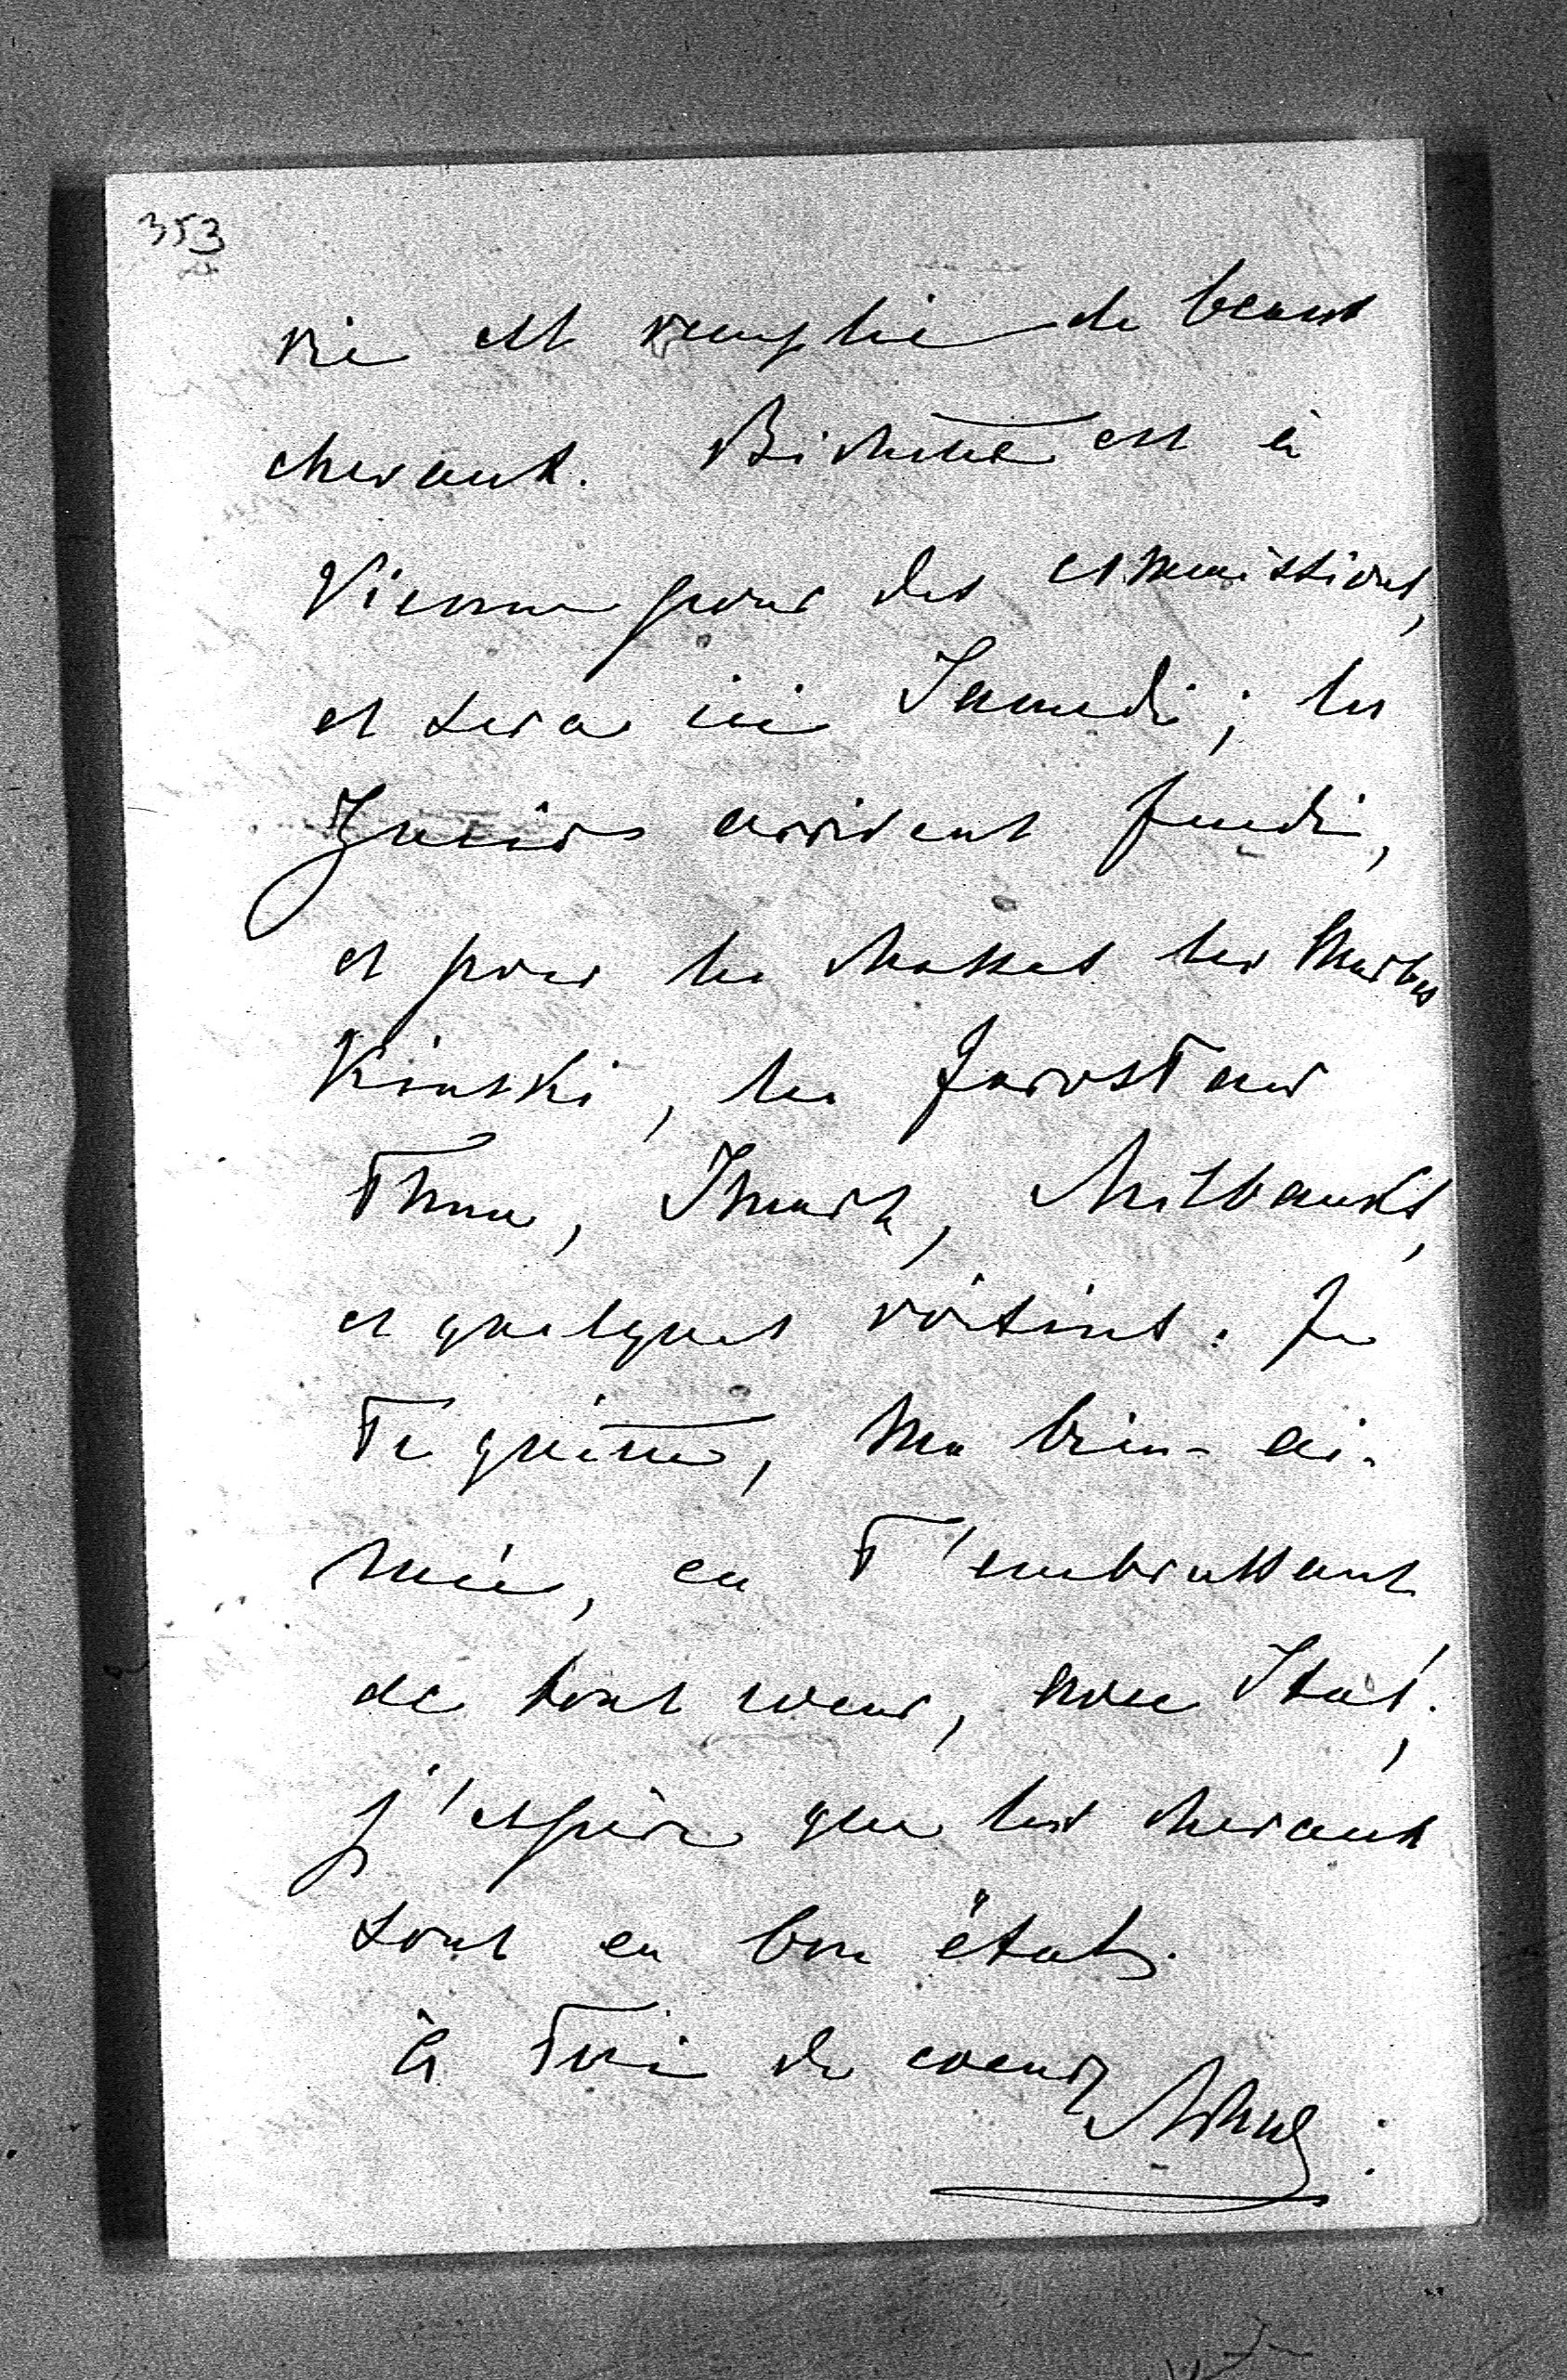 353
rie est remplie de beaux
chevaux. Bichette est à
Vienne pour des commissions,
et sera ici Samedi; les
arrivent Jeudi,
et pour les chasses les
Kinski, les Jaroslav
Thun, Milbanks,
et quelques voisins. Je
Te quitte, ma bien-ai-
mée, en T'embrassant
de tout coeur, avec
j'espère que les chevaux
sont en bon état.
à Toi de coeur